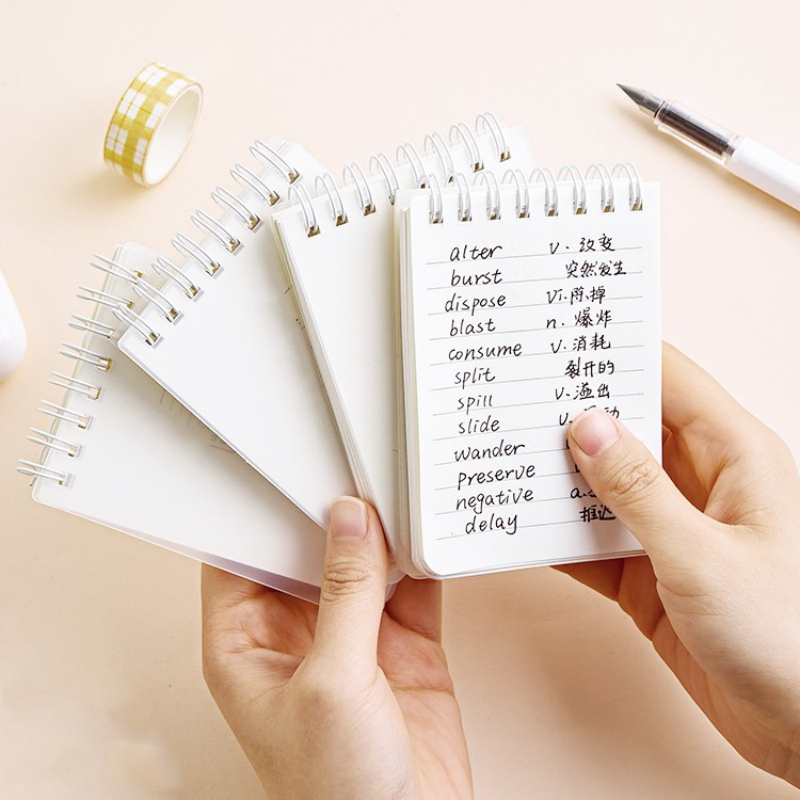 alter v. 改变
burst 突然发生
dispose vi. 除掉
blast n. 爆炸
consume v. 消耗
split 裂开的
spill v. 溢出
slide v. 动
wander
preserve
negative a.
delay 推迟